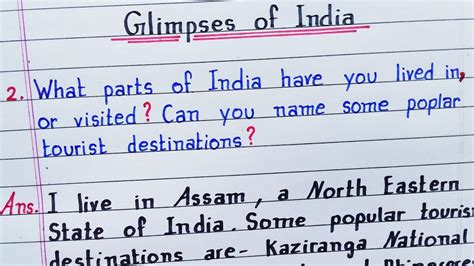 Glimpses of India
2. What parts of India have you lived in,
or visited? Can you name some poplar
tourist destinations?
Ans. I live in Assam, a North Eastern
State of India. Some popular tourist
destinations are- Kaziranga National